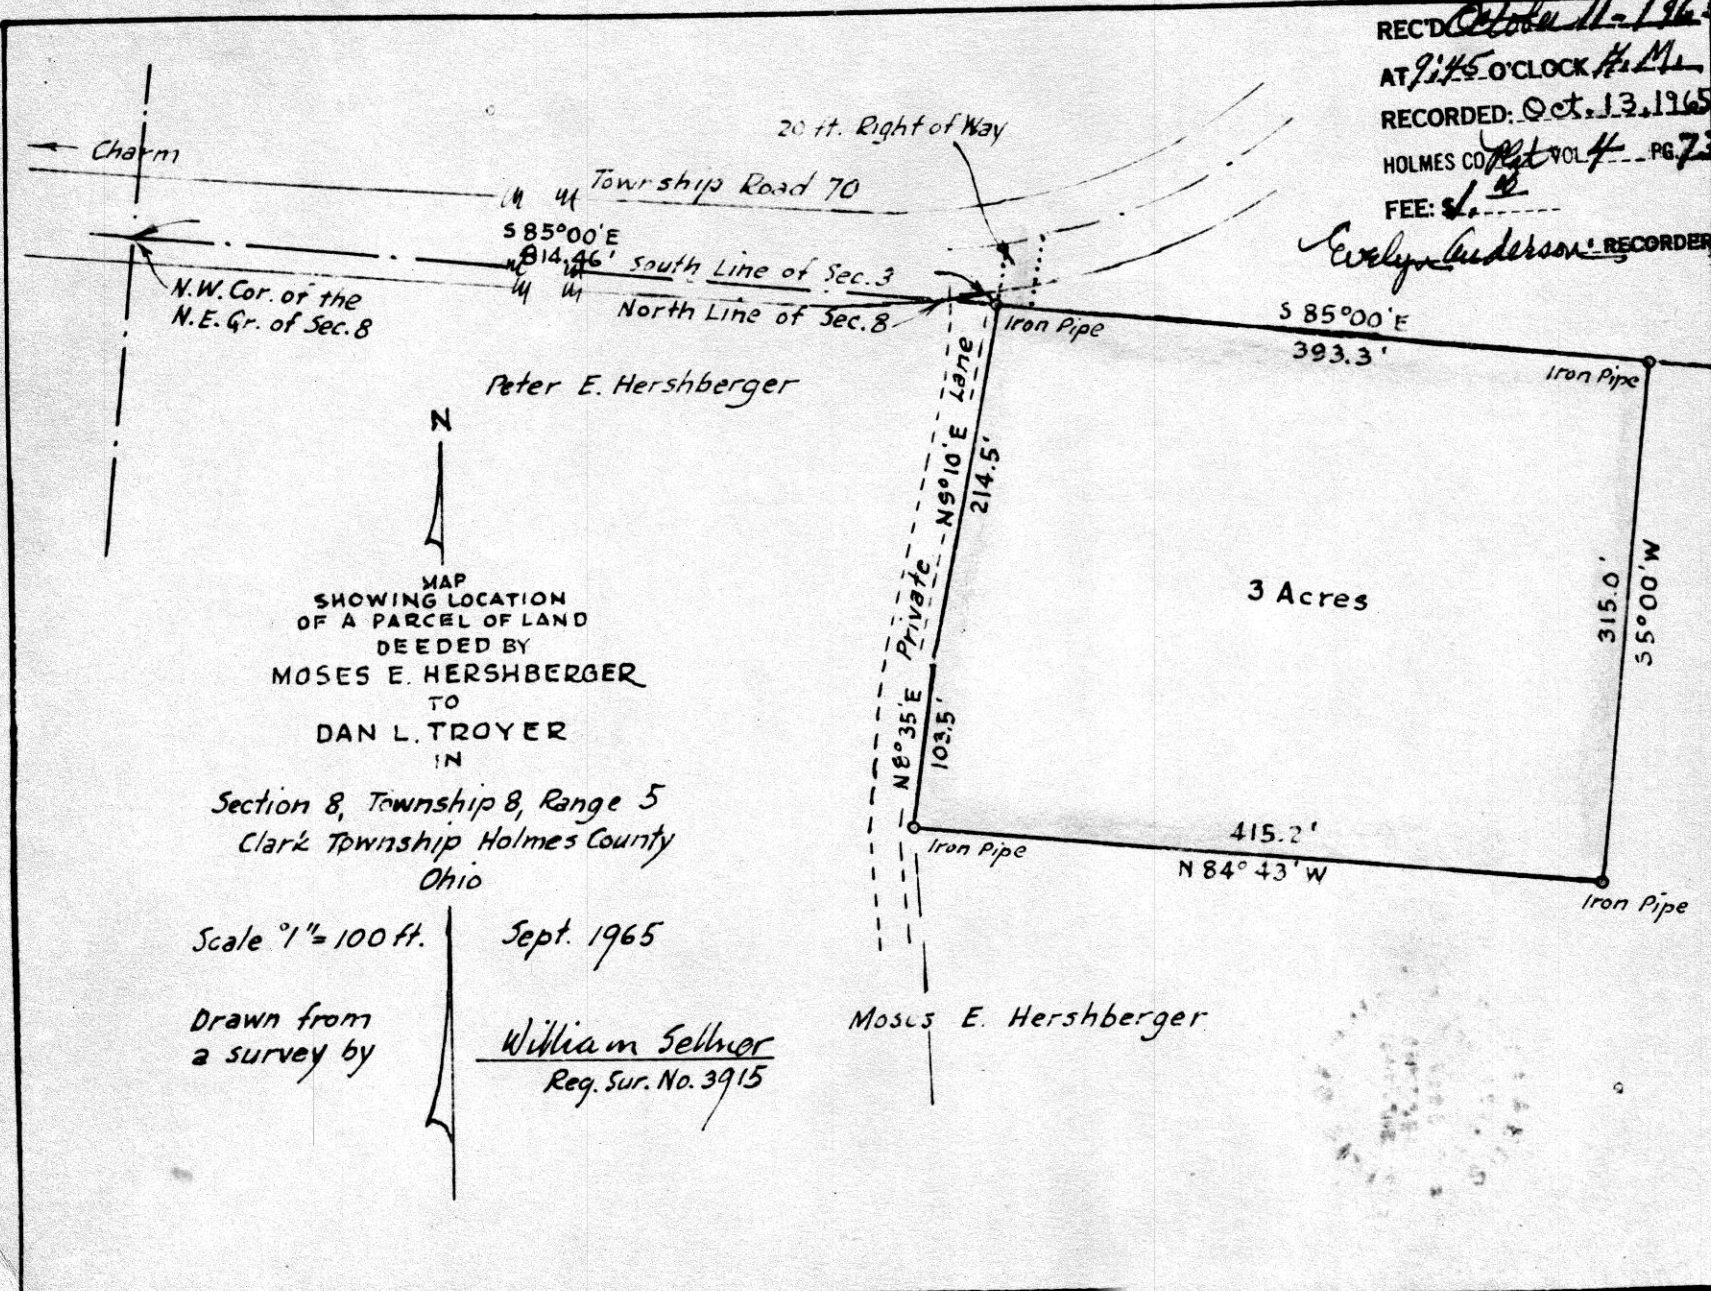 REC'D October 11-196
AT 9:45 O'CLOCK A.M.
RECORDED: Oct. 13, 1965
HOLMES CO Plat VOL 4 PG. 73
FEE: $1.00
Evelyn Anderson RECORDER
20 ft. Right of Way
← Charm
Township Road 70
S 85°00' E
814.46'
South Line of Sec. 3
North Line of Sec. 8
N.W. Cor. of the
N.E. Qr. of Sec. 8
Iron Pipe
S 85°00' E
393.3'
Iron Pipe
Peter E. Hershberger
N
Private Lane
N 9°10' E
214.5'
N 8°35' E
103.5'
3 Acres
315.0'
S 5°00' W
MAP
SHOWING LOCATION
OF A PARCEL OF LAND
DEEDED BY
MOSES E. HERSHBERGER
TO
DAN L. TROYER
IN
Section 8, Township 8, Range 5
Clark Township Holmes County
Ohio
415.2'
N 84°43' W
Iron Pipe
Iron Pipe
Scale 1" = 100 ft.
Sept. 1965
Drawn from
a survey by
William Sellner
Reg. Sur. No. 3915
Moses E. Hershberger